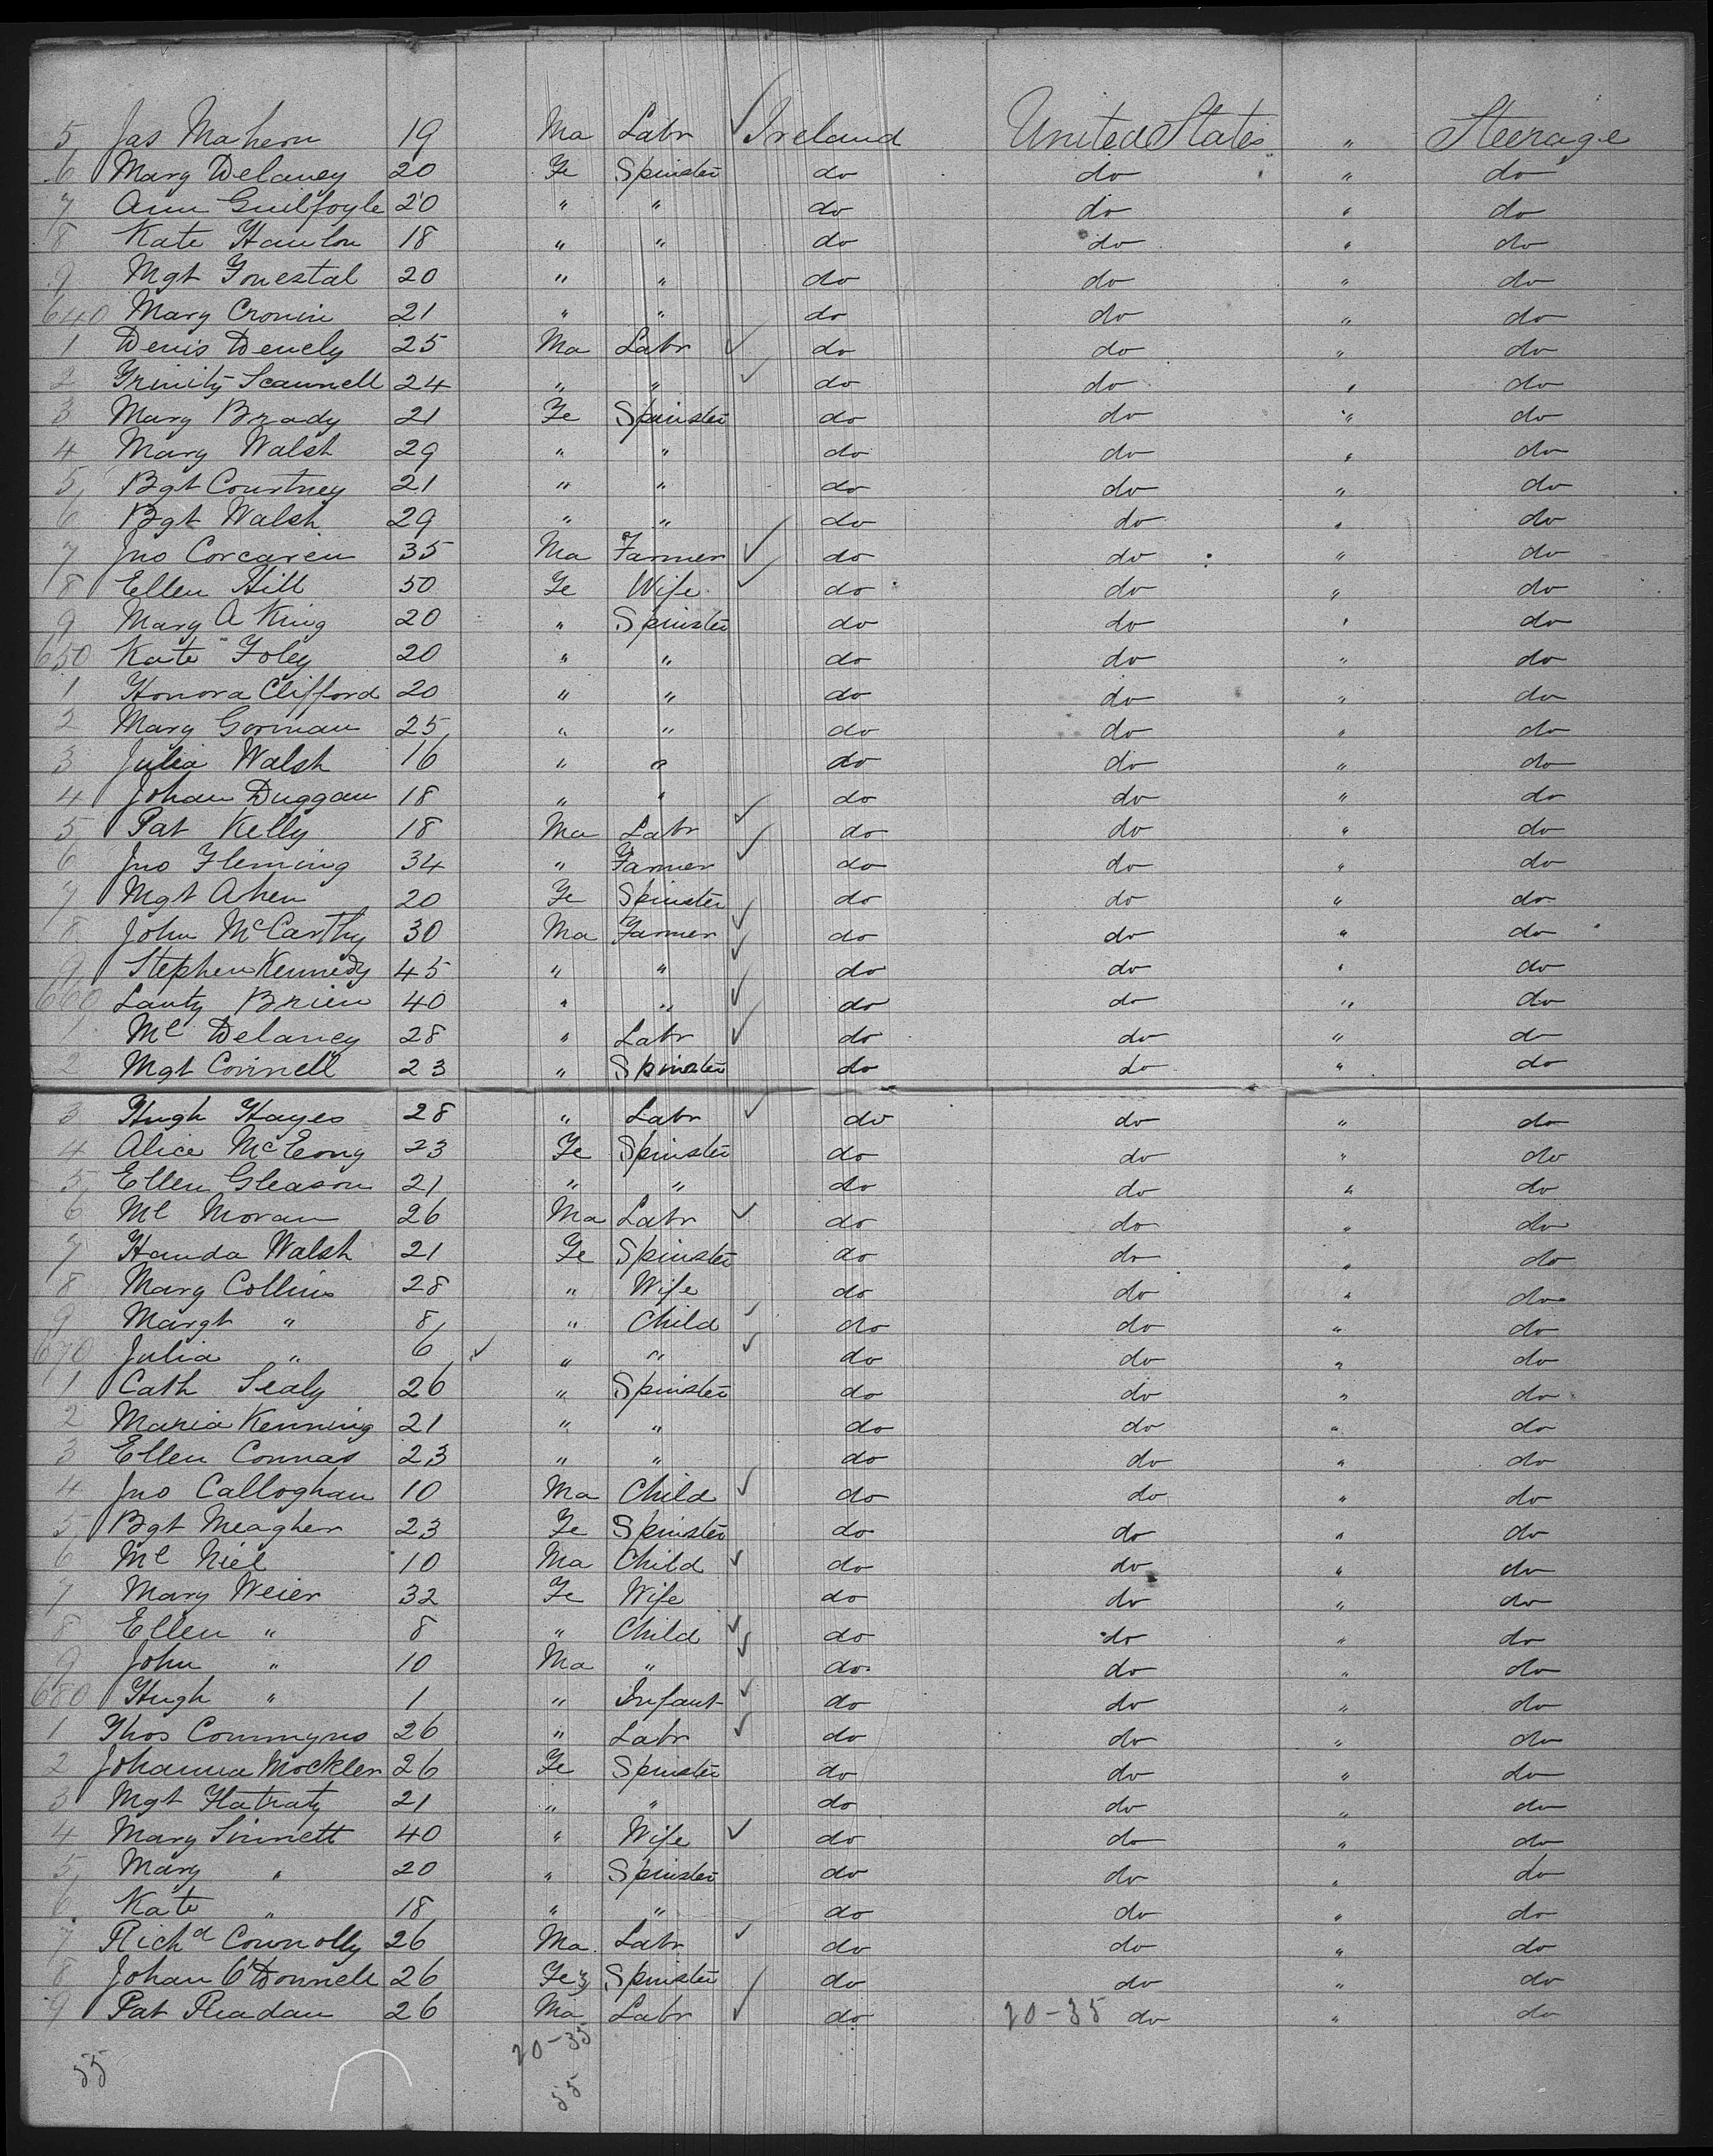 5 Jas Mahern 19 Ma Labr ✓ Ireland United States " Steerage
6 Mary Delaney 20 Fe Spinster do do " do
7 Ann Guilfoyle 20 " " do do " do
8 Kate Hanlon 18 " " do do " do
9 Mgt 20 " " do do " do
640 Mary Cronin 21 " " do do " do
1 Denis Denely 25 Ma Labr ✓ do do " do
2 Trinity Scannell 24 " " ✓ do do " do
3 Mary Brady 21 Fe Spinster do do " do
4 Mary Walsh 29 " " do do " do
5 Bgt Courtney 21 " " do do " do
6 Bgt Walsh 29 " " do do " do
7 Jno Corcaren 35 Ma Farmer ✓ do do " do
8 Ellen Hill 50 Fe Wife ✓ do do " do
9 Mary A King 20 " Spinster do do " do
650 Kate Foley 20 " " do do " do
1 Honora Clifford 20 " " do do " do
2 Mary Gorman 25 " " do do " do
3 Julia Walsh 16 " " do do " do
4 Johan Duggan 18 " " do do " do
5 Pat Kelly 18 Ma Labr ✓ do do " do
6 Jno Fleming 34 " Farmer ✓ do do " do
7 Mgt Ahen 20 Fe Spinster do do " do
8 John McCarthy 30 Ma Farmer ✓ do do " do
9 Stephen Kennedy 45 " " ✓ do do " do
660 Lanty Brien 40 " " ✓ do do " do
1 Ml Delaney 28 " Labr ✓ do do " do
2 Mgt Connell 23 " Spinster do do " do
3 Hugh Hayes 28 " Labr ✓ do do " do
4 Alice McEong 23 Fe Spinster do do " do
5 Ellen Gleason 21 " " do do " do
6 Ml Moran 26 Ma Labr ✓ do do " do
7 Handa Walsh 21 Fe Spinster do do " do
8 Mary Collins 28 " Wife do do " do
9 Margt " 8 " Child ✓ do do " do
670 Julia " 6 ✓ " " ✓ do do " do
1 Cath Sealy 26 " Spinster do do " do
2 Maria Kenning 21 " " do do " do
3 Ellen Connas 23 " " do do " do
4 Jno Calloghan 10 Ma Child ✓ do do " do
5 Bgt Meagher 23 Fe Spinster do do " do
6 Ml Niel 10 Ma Child ✓ do do " do
7 Mary Weier 32 Fe Wife do do " do
8 Ellen " 8 " Child ✓ do do " do
9 John " 10 Ma " ✓ do do " do
680 Hugh " 1 " Infant ✓ do do " do
1 Thos Commyns 26 " Labr ✓ do do " do
2 Johanna Mockler 26 Fe Spinster do do " do
3 Mgt 21 " " do do " do
4 Mary Sinnett 40 " Wife ✓ do do " do
5 Mary " 20 " Spinster do do " do
6 Kate " 18 " " do do " do
7 Richd Connolly 26 Ma Labr ✓ do do " do
8 Johan O'Donnell 26 Fe Spinster do do " do
9 Pat Readan 26 Ma Labr ✓ do 20-35 do " do
20-35
55 55